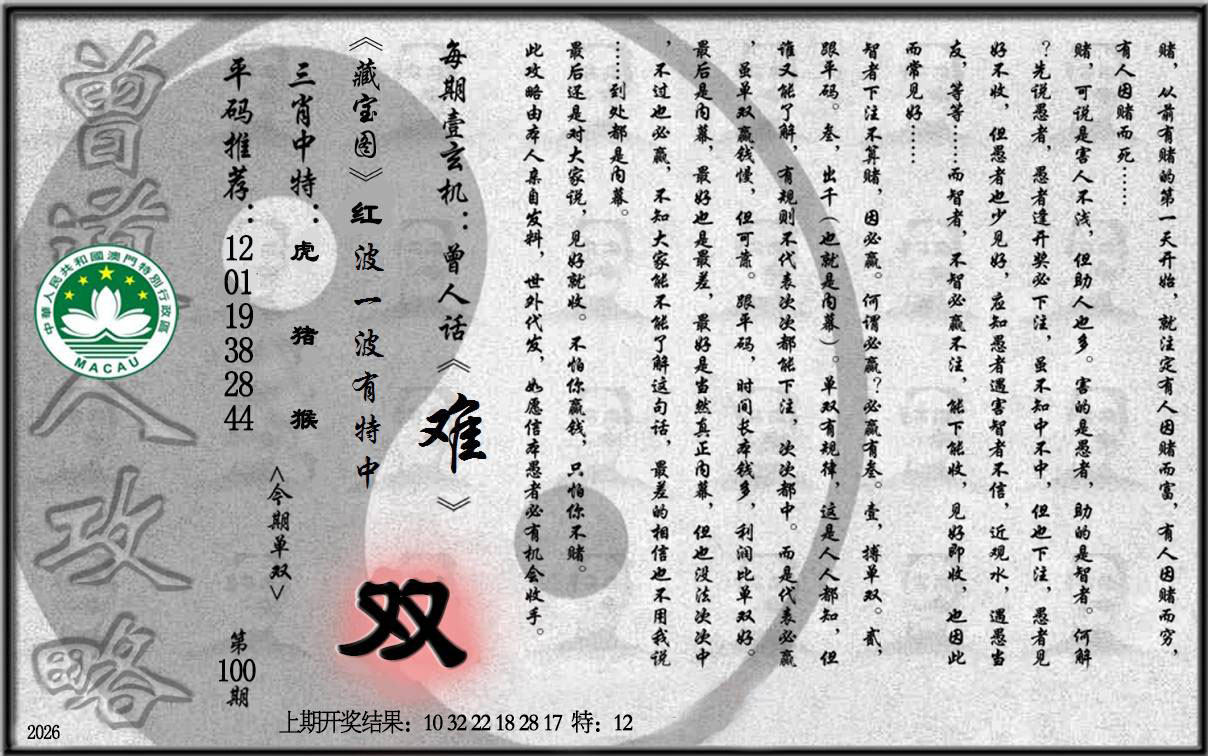 赌，从前有赌的第一天开始，就注定有人因赌而富，有人因赌而穷，
有人因赌而死……
赌，可说是害人不浅，但助人也多。害的是愚者，助的是智者。何解
？先说愚者，愚者逢开奖必下注，虽不知中不中，但也下注，愚者见
好不收，但愚者也少见好，应知愚者遇害智者不信，近观水，遇愚当
友，等等……而智者，不智必赢不注，能下能收，见好即收，也因此
而常见好……
智者下注不算赌，因必赢。何谓必赢？必赢有叁。壹，搏单双。贰，
跟平码。叁，出千（也就是内幕）。单双有规律，这是人人都知，但
谁又能了解，有规则不代表次次都能下注，次次都中。而是代表必赢
，虽单双赢钱慢，但可靠。跟平码，时间长本钱多，利润比单双好。
最后是内幕，最好也是最差，最好是当然真正内幕，但也没法次次中
，不过也必赢，不知大家能不能了解这句话，最差的相信也不用我说
……到处都是内幕。
最后还是对大家说，见好就收。不怕你赢钱，只怕你不赌。
此攻略由本人亲自发料，世外代发，如愿信本愚者必有机会收手。
每期壹玄机：曾人话《难》
《藏宝图》红波一波有特中
双
三肖中特：虎 猪 猴
<今期单双>
平码推荐：12 01 19 38 28 44
第100期
曾道人攻略
中華人民共和國澳門特別行政區
MACAU
上期开奖结果：10 32 22 18 28 17 特：12
2026